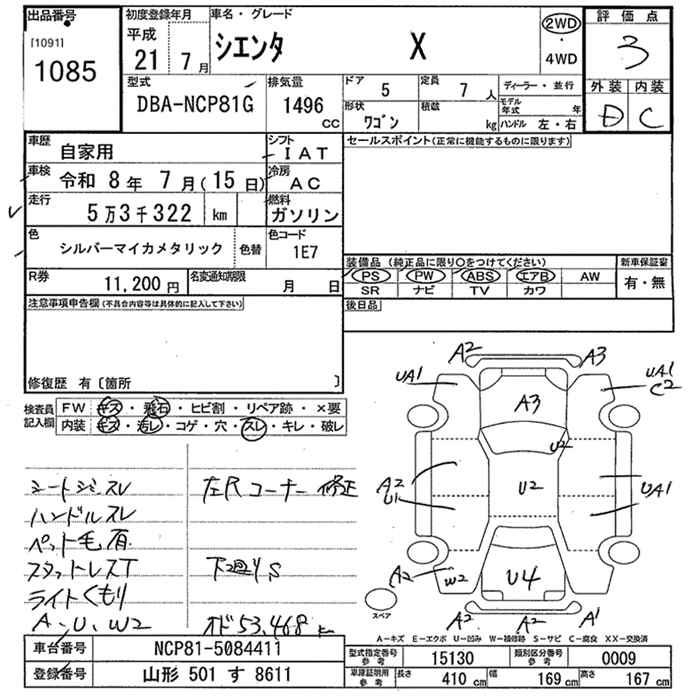 出品番号 初度登録年月 車名・グレード 2WD 評価点
[1091] 平成 シエンタ X ・ 3
1085 21 7月 4WD
型式 排気量 ドア 5 定員 7人 ディーラー・並行 外装 内装
DBA-NCP81G 1496 cc 形状 ワゴン 積載 kg モデル年式 年 D C
ハンドル 左・右
車歴 自家用 シフト IAT セールスポイント(正常に機能するものに限ります)
車検 令和 8年 7月(15日) 冷房 AC
走行 5万3千322 km 燃料 ガソリン
色 シルバーマイカメタリック 色替 色コード 1E7
装備品(純正品に限り○をつけてください) 新車保証書
PS PW ABS エアB AW 有・無
SR ナビ TV カワ
R券 11,200円 名変通知期限 月 日
後日品
注意事項申告欄(不具合内容等は具体的に記入して下さい)
修復歴 有〔箇所 〕
検査員記入欄 FW キズ・飛石・ヒビ割・リペア跡・×要
内装 キズ・汚レ・コゲ・穴・スレ・キレ・破レ
A2 A3
UA1 UA1
C2
A3
U2
A2 U2 UA1
U1
A2 W2 U4
A2 A2 A1
スペア
シートジミスレ 左尺コーナー修正
ハンドルスレ
ペット毛有
スタットレスT 下廻りS
ライトくもり
A-U、W2 オド53,468km
A-キズ E-エクボ U-凹み W-補修跡 S-サビ C-腐食 XX-交換済
車台番号 NCP81-5084411 型式指定番号 参考 15130 類別区分番号 参考 0009
登録番号 山形 501 す 8611 車庫証明用 参考 長さ 410 cm 幅 169 cm 高さ 167 cm